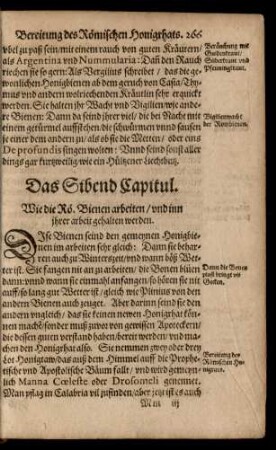 Bereitung des Römischen Honigrhats. 266
vbel zu paß sein/mit einem rauch von guten Kräuren/
als Argentina vnd Nummularia: Daß den Rauch
riechen sie so gern: Als Vergilius schreibet / das die ge-
wonlichen Honigbienen ab dem geruch von Casia/Thy-
mus vnd andern wolriechenden Kräutlin ehr erquickt
werden. Sie halten jhr Wacht vnd Vigilien wie ande-
re Bienen: Dann da seind jhrer viel/ die bei Nacht mit
einem getürmel auffsitzen/die schwürmen vnd sausen
je einer dem andern zu/ als ob sie die Metten / oder eins
De profundis singen wolten: Vnnd seind sonst aller
dings gar kurtzweilig wie ein Hültzener Liechtbetz.
Beräuchung mit
Guldenkraut/
Silberkraut vnd
Pfenningkraut.
Vigilien
der Rombienen.
Das Sibend Capitul.
Wie die Rö. Bienen arbeiten / vnd inn
jhrer arbeit gehalten werden.
DIse Bienen seind den gemeynen Honigbie-
nen im arbeiten sehr gleich: Dann sie behar-
ren auch zu Winterszeit/vnd wann böß Wet-
ter ist. Sie fangen nit an zu arbeiten/ die Bonen blüen
dann: vnnd wann sie einmahl anfangen/so hören sie nit
auff/so lang gut Wetter ist / gleich wie Plinius von den
andern Bienen auch zeuget. Aber darinn seind sie den
andern vngleich / das sie keinen newen Honigrhat kön-
nen mache/sonder muß zuvor von gewissen Apoteckern/
die dessen guten verstand haben/bereit werden: vnd ma-
chen den Honigrhat also. Sie nemmen zwey oder drey
Lot Honigtaw/das auß dem Himmel auff die Prophe-
tische vnd Apostolische Bäum fallt / vnd wird gemeyn-
lich Manna Cœleste oder Drosomeli genennet.
Man pflag in Calabria vil zufinden/aber jetzt ist es auch
Dann die Bonen
Bereitung des
Römischen Ho-
nigrhats.
Mm iij